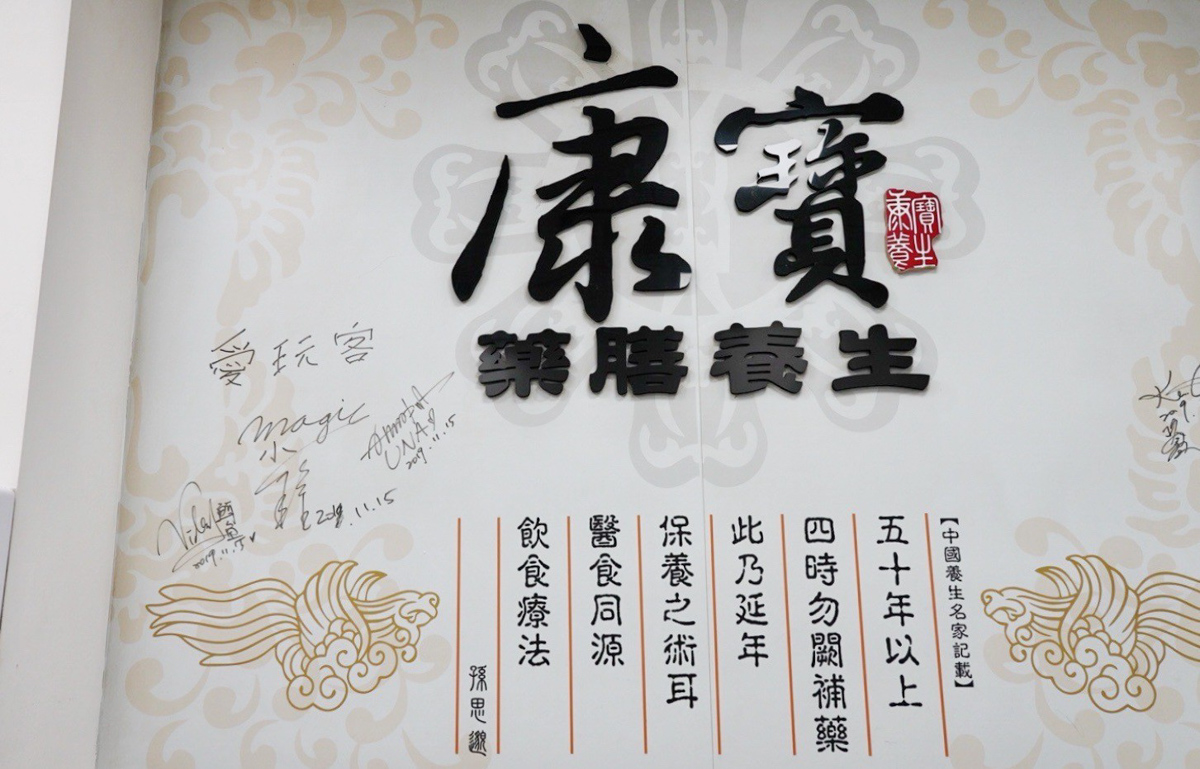 康寶
寶生
康養
藥膳養生
愛玩客
magic
2019.11.15
UNA
2019.11.15
2019.11.15
【中國養生名家記載】
五十年以上
四時勿闕補藥
此乃延年
保養之術耳
醫食同源
飲食療法
孫思邈